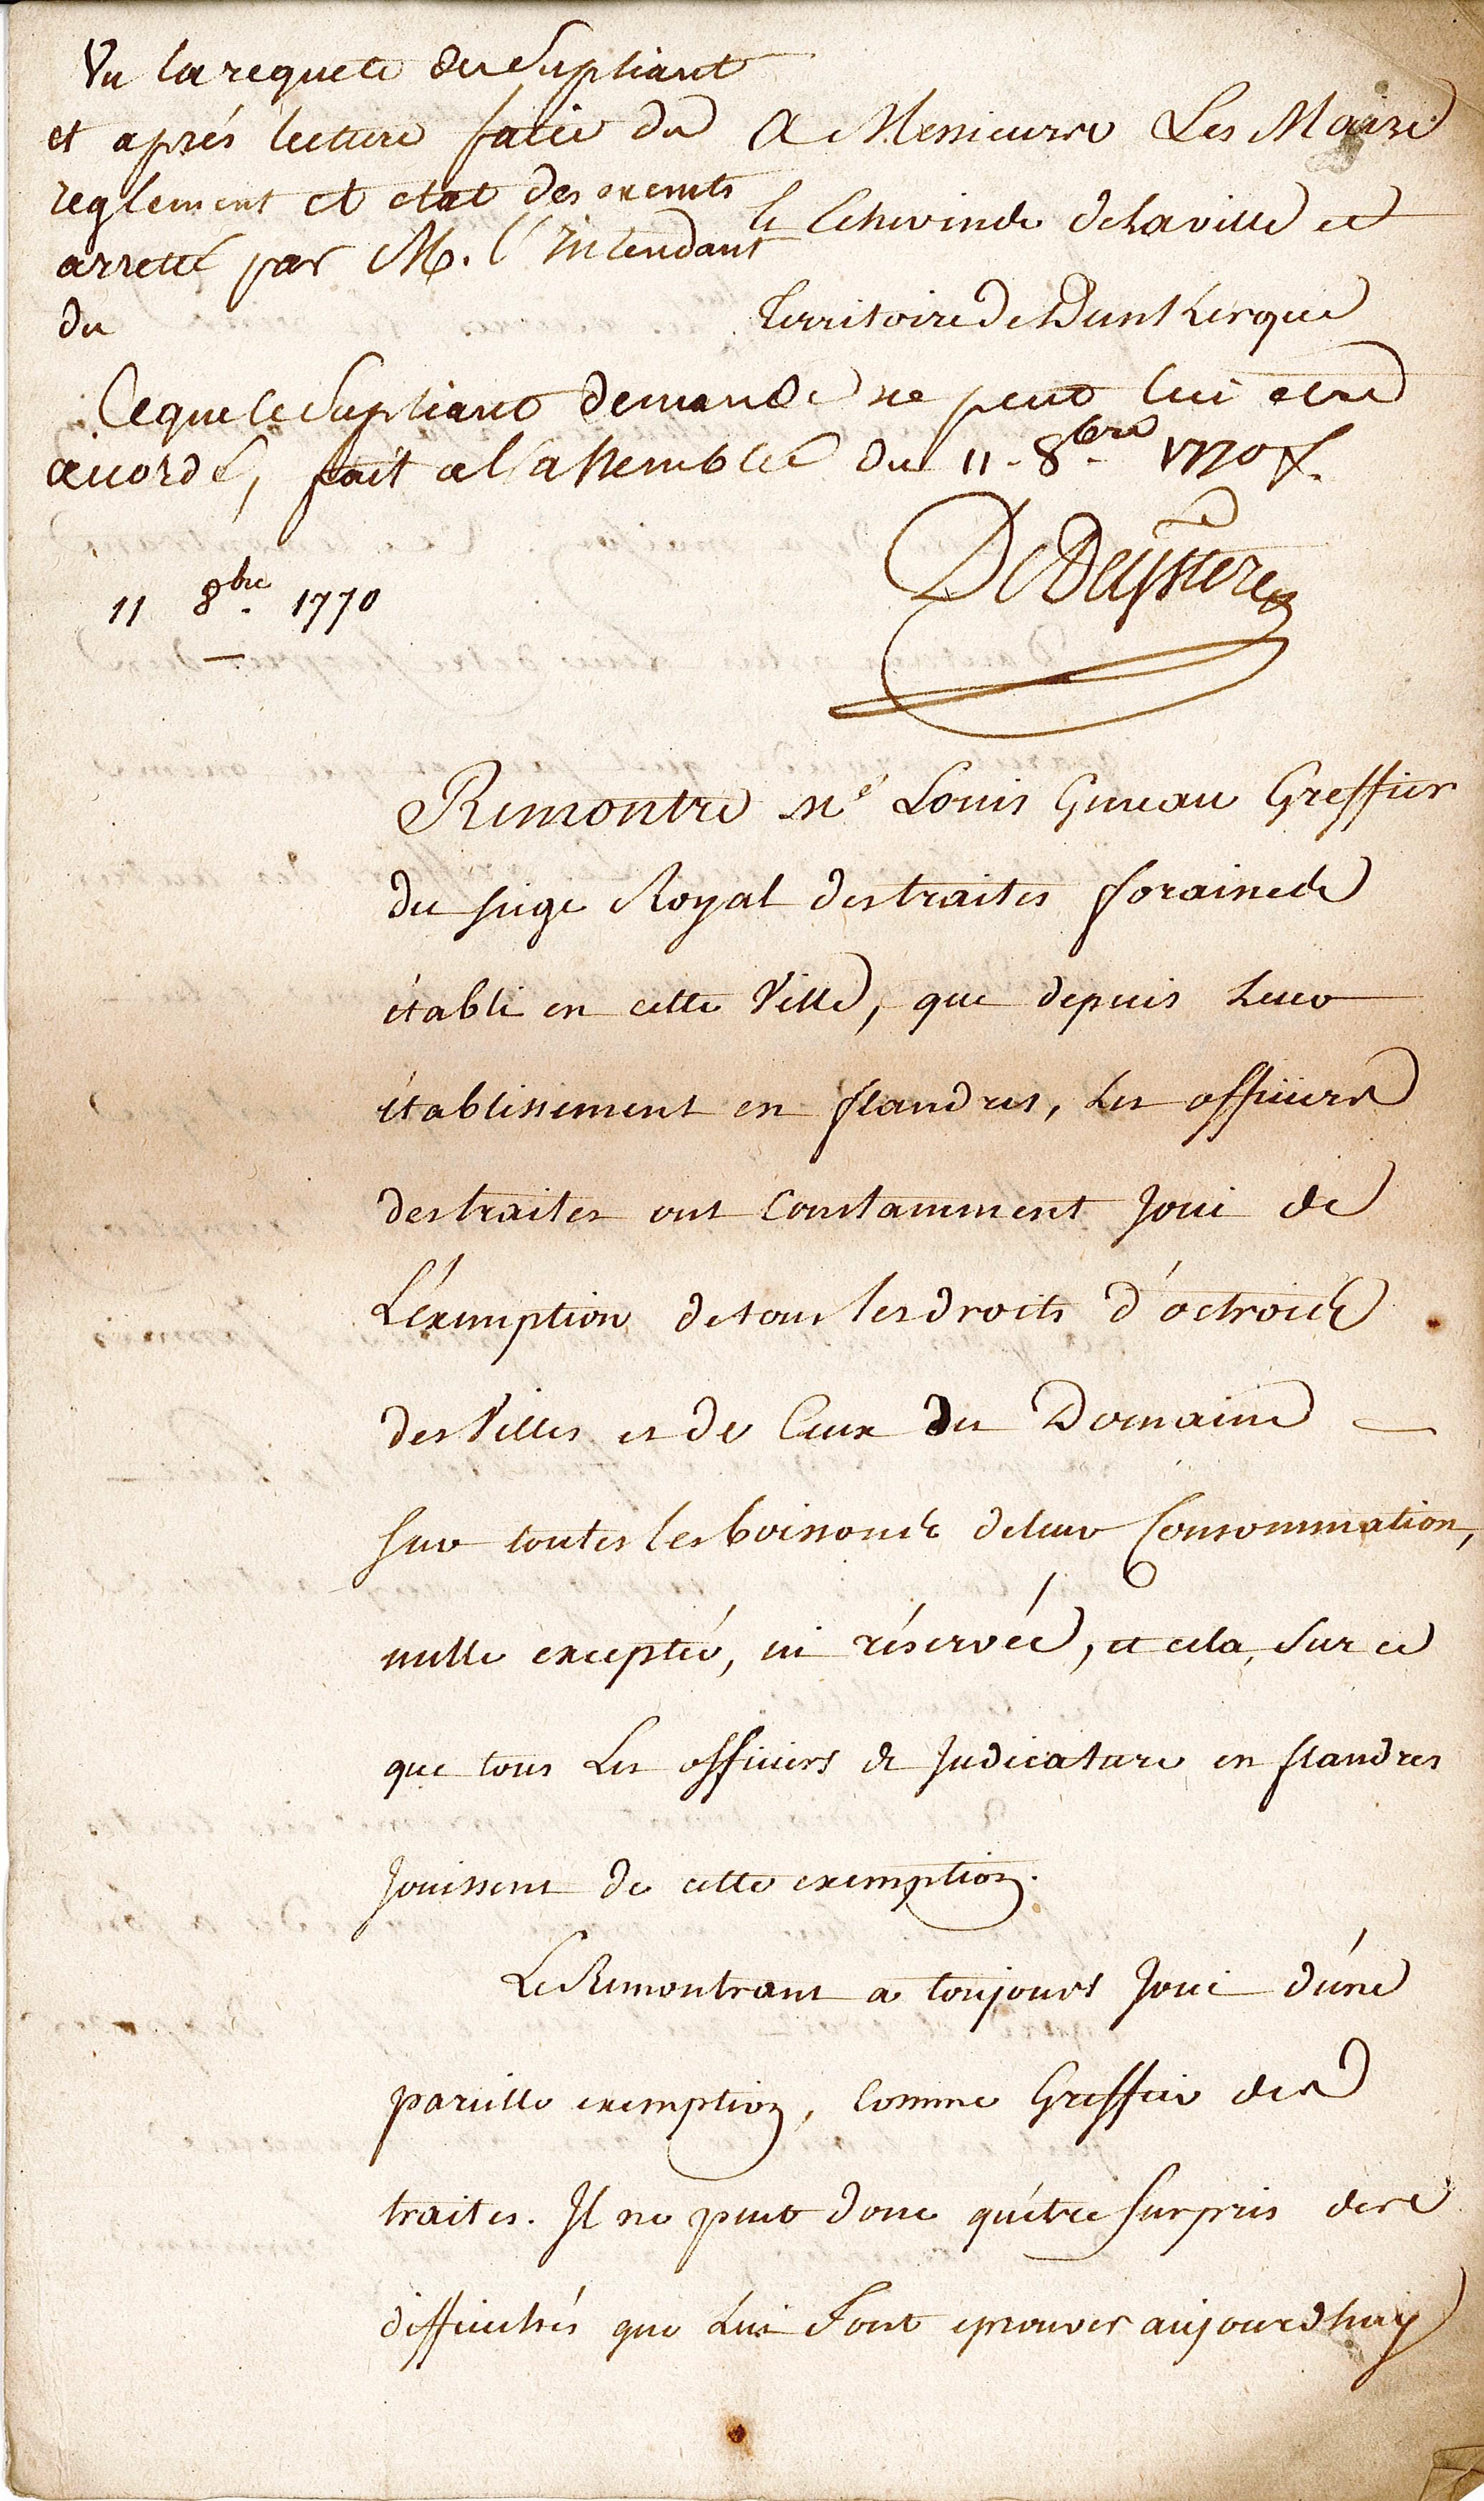 Vu la requete du Supliant
et aprés lecture faite du
reglement et etat des exemts
arretté par M. l'intendant
du
A Messieurs Les Maire
& Echevins de la ville et
Territoire de Dunkerque
Ce que le Supliant demande ne peut lui etre
accordé, fait a l'assemblée du 11. 8bre 1770
DeDeystere
11 8bre 1770
Remontre me Louis Gineau Greffier
du siege Royal des traites foraines
établi en cette Ville, que depuis Leur
établissement en flandres, Les officiers
des traites ont Constamment Joui de
L'éxemption de tous les droits d'octrois
des Villes et de Ceux du Domaine
sur toutes les boissons de leur Consommation,
nulle exceptée, ni réservée, et cela, sur ce
que tous Les officiers de Judicature en flandres
Jouissent de cette exemption.
Le Remontrant a toujours Joui d'une
pareille exemption, Comme Greffier des
traites. Il ne peut donc qu'être surpris des
difficultés que Lui Font eprouver aujourdhuy